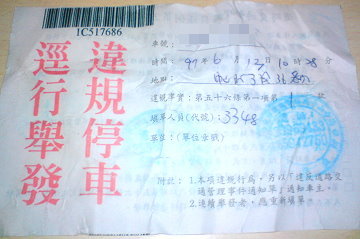 1C517686
違規停車
逕行舉發
車號:
時間: 97年6月12日10時28分
地點:
違規事實: 第五十六條第一項第1款
填單人員(代號): 3348
單位: (單位章戳)
附註: 1.本項違規行為,另以「違反道路交
通管理事件通知單」通知車主。
2.連續舉發者,應重新填單。